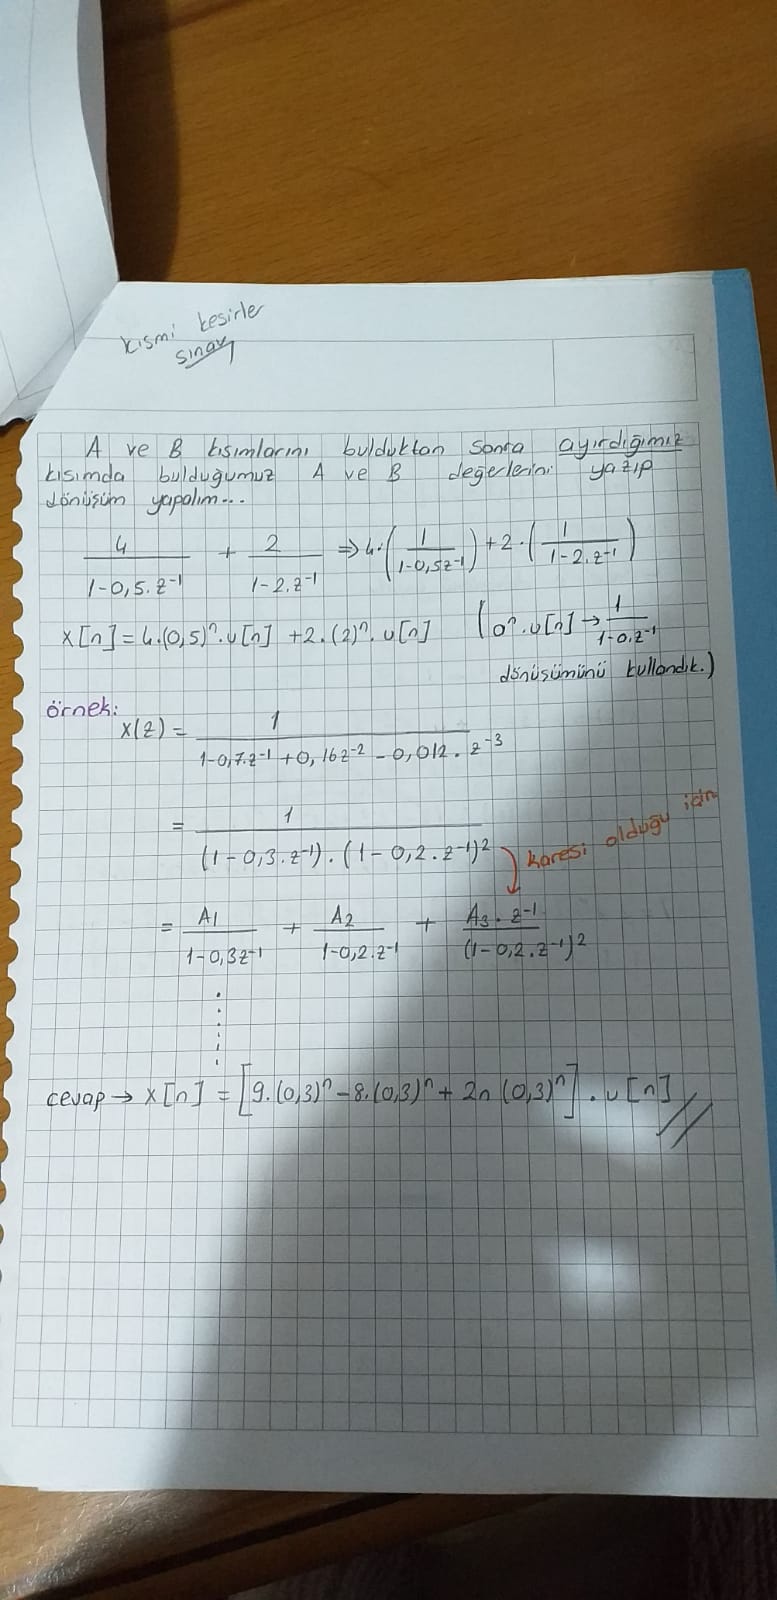 kısmi kesirler
sınav
A ve B kısımlarını bulduktan sonra ayırdığımız
kısımda bulduğumuz A ve B değerlerini yazıp
dönüşüm yapalım...
4/(1-0,5.z⁻¹) + 2/(1-2.z⁻¹) ⇒ 4.(1/(1-0,5z⁻¹)) + 2.(1/(1-2.z⁻¹))
x[n] = 4.(0,5)ⁿ.u[n] + 2.(2)ⁿ.u[n] (aⁿ.u[n] → 1/(1-a.z⁻¹)
dönüşümünü kullandık.)
örnek:
x(z) = 1/(1-0,7.z⁻¹ + 0,16z⁻² - 0,012.z⁻³)
= 1/((1-0,3.z⁻¹).(1-0,2.z⁻¹)²
karesi olduğu için
= A₁/(1-0,3z⁻¹) + A₂/(1-0,2.z⁻¹) + A₃.z⁻¹/(1-0,2.z⁻¹)²
cevap → x[n] = [9.(0,3)ⁿ - 8.(0,3)ⁿ + 2n(0,3)ⁿ].u[n]